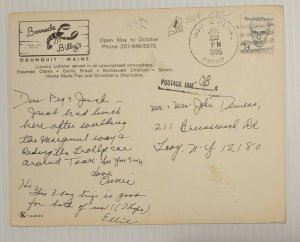 Barnacle
Billy's
OGUNQUIT · MAINE
Open May to October
Phone 207-646-5575
Luxury Lobster served in an unsurpassed atmosphere.
Steamed Clams - Garlic Bread - Barbecued Chicken - Salads.
Home Made Pies and Strawberry Shortcake.
JUL
22
PM
1985
03907
Sinclair Lewis
POSTAGE DUE
Dear Peg & Jack -
Just had lunch
here after walking
the Marginal way &
riding the Trolley car
around Town.
Love
Eunice
Hi,
This 3-day trip is good
for both of us!! (I hope)
Ellie
Mr. Mrs John
211 Greenwood Rd
Troy, N.Y 12180
K